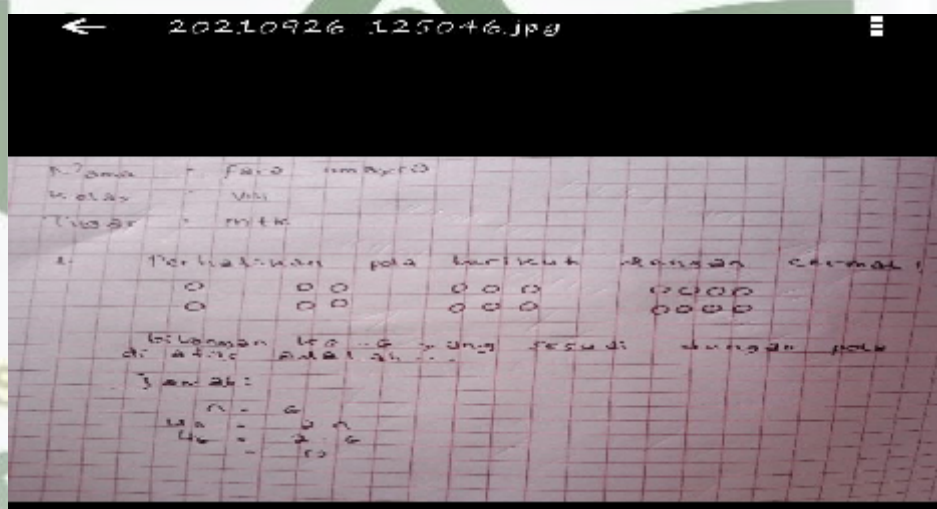 20210926_125046.jpg
Nama : Fara umayra
Kelas : VIII
Tugas : MTK
1. Perhatikan pola berikut dengan cermat!
bilangan ke-6 yang sesuai dengan pola
di atas adalah ...
Jawab:
n = 6
Un = 2 n
U6 = 2 . 6